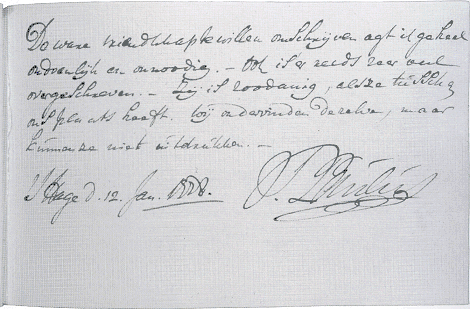 De ware vriendschap te willen omschrijven agt ik geheel
ondoenlijk en onnoodig. – Ook is er reeds zeer veel
over geschreven. – Zij is zoodanig, als ze tusschen
ons plaats heeft. Wij ondervinden dezelve, maar
kunnen ze niet uitdrukken. –
's Hage d. 12. Jan.